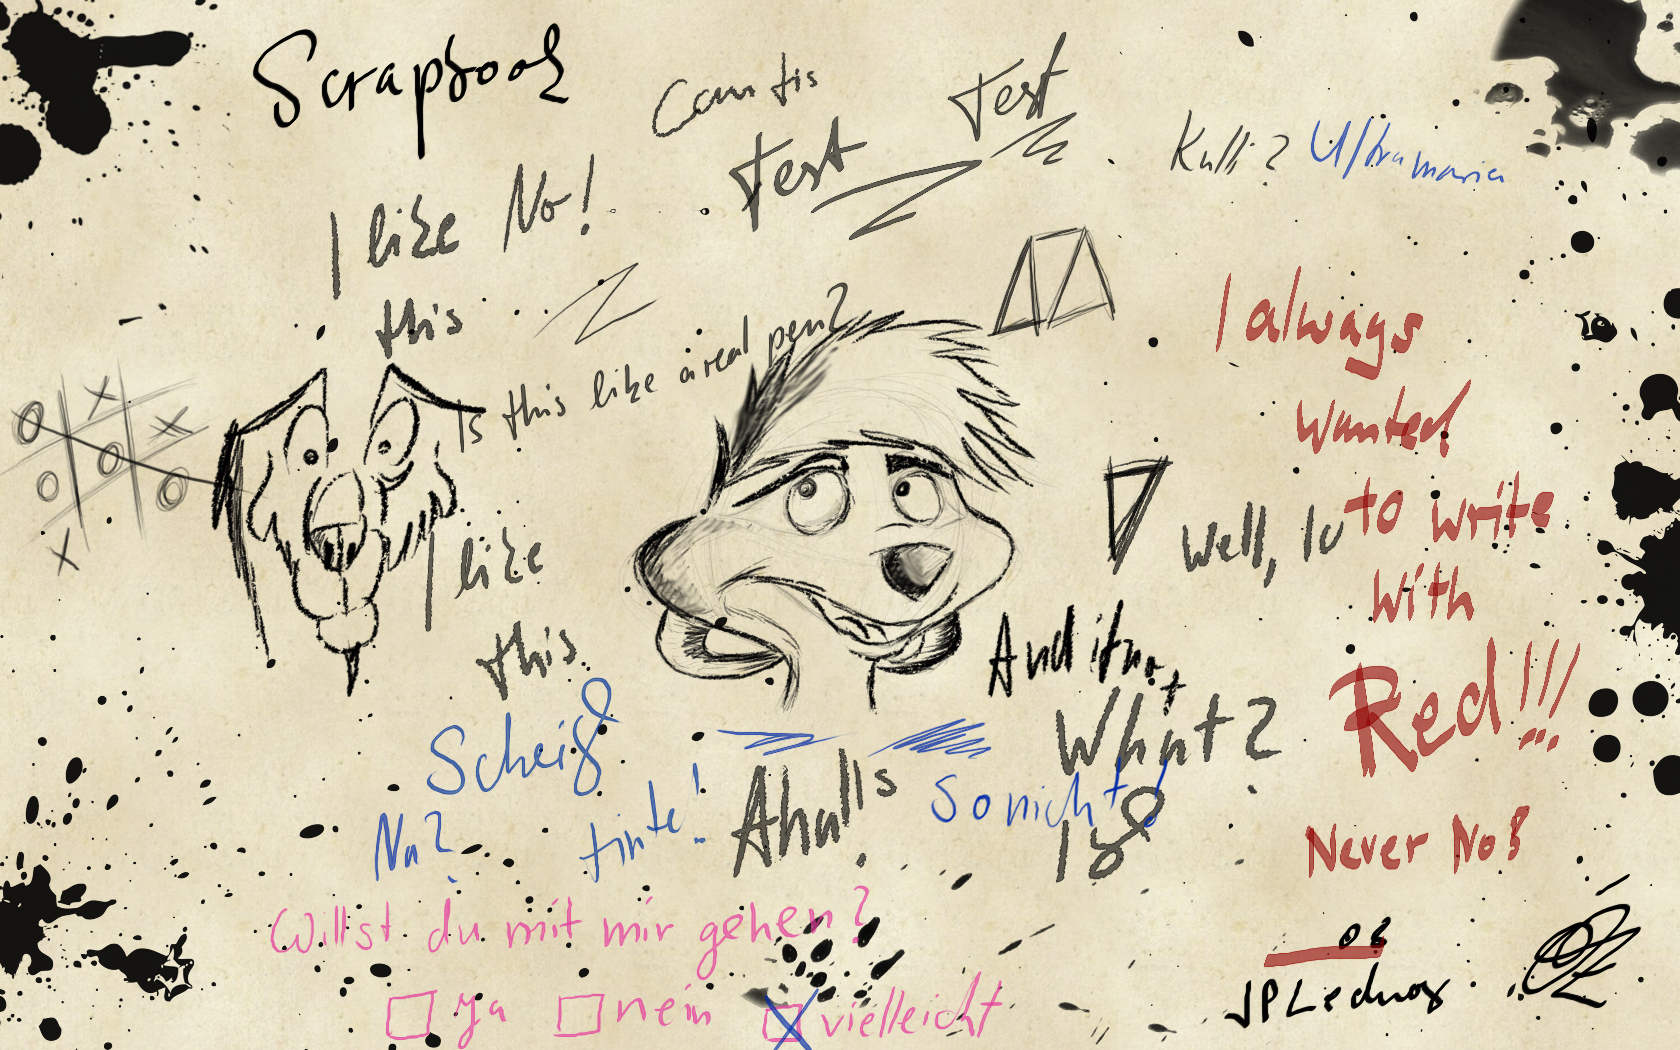 Scrapbook
Test
Test
Kulli?
Ultramarin
I like No!
this
Is this like a real pen?
I always
wanted
to write
with
Red!!!
Never No!
Well, Iu
I like
this
And it
What?
Scheiß
tinte!
Na?
So nicht!
18
Willst du mit mir gehen?
ja nein vielleicht
08